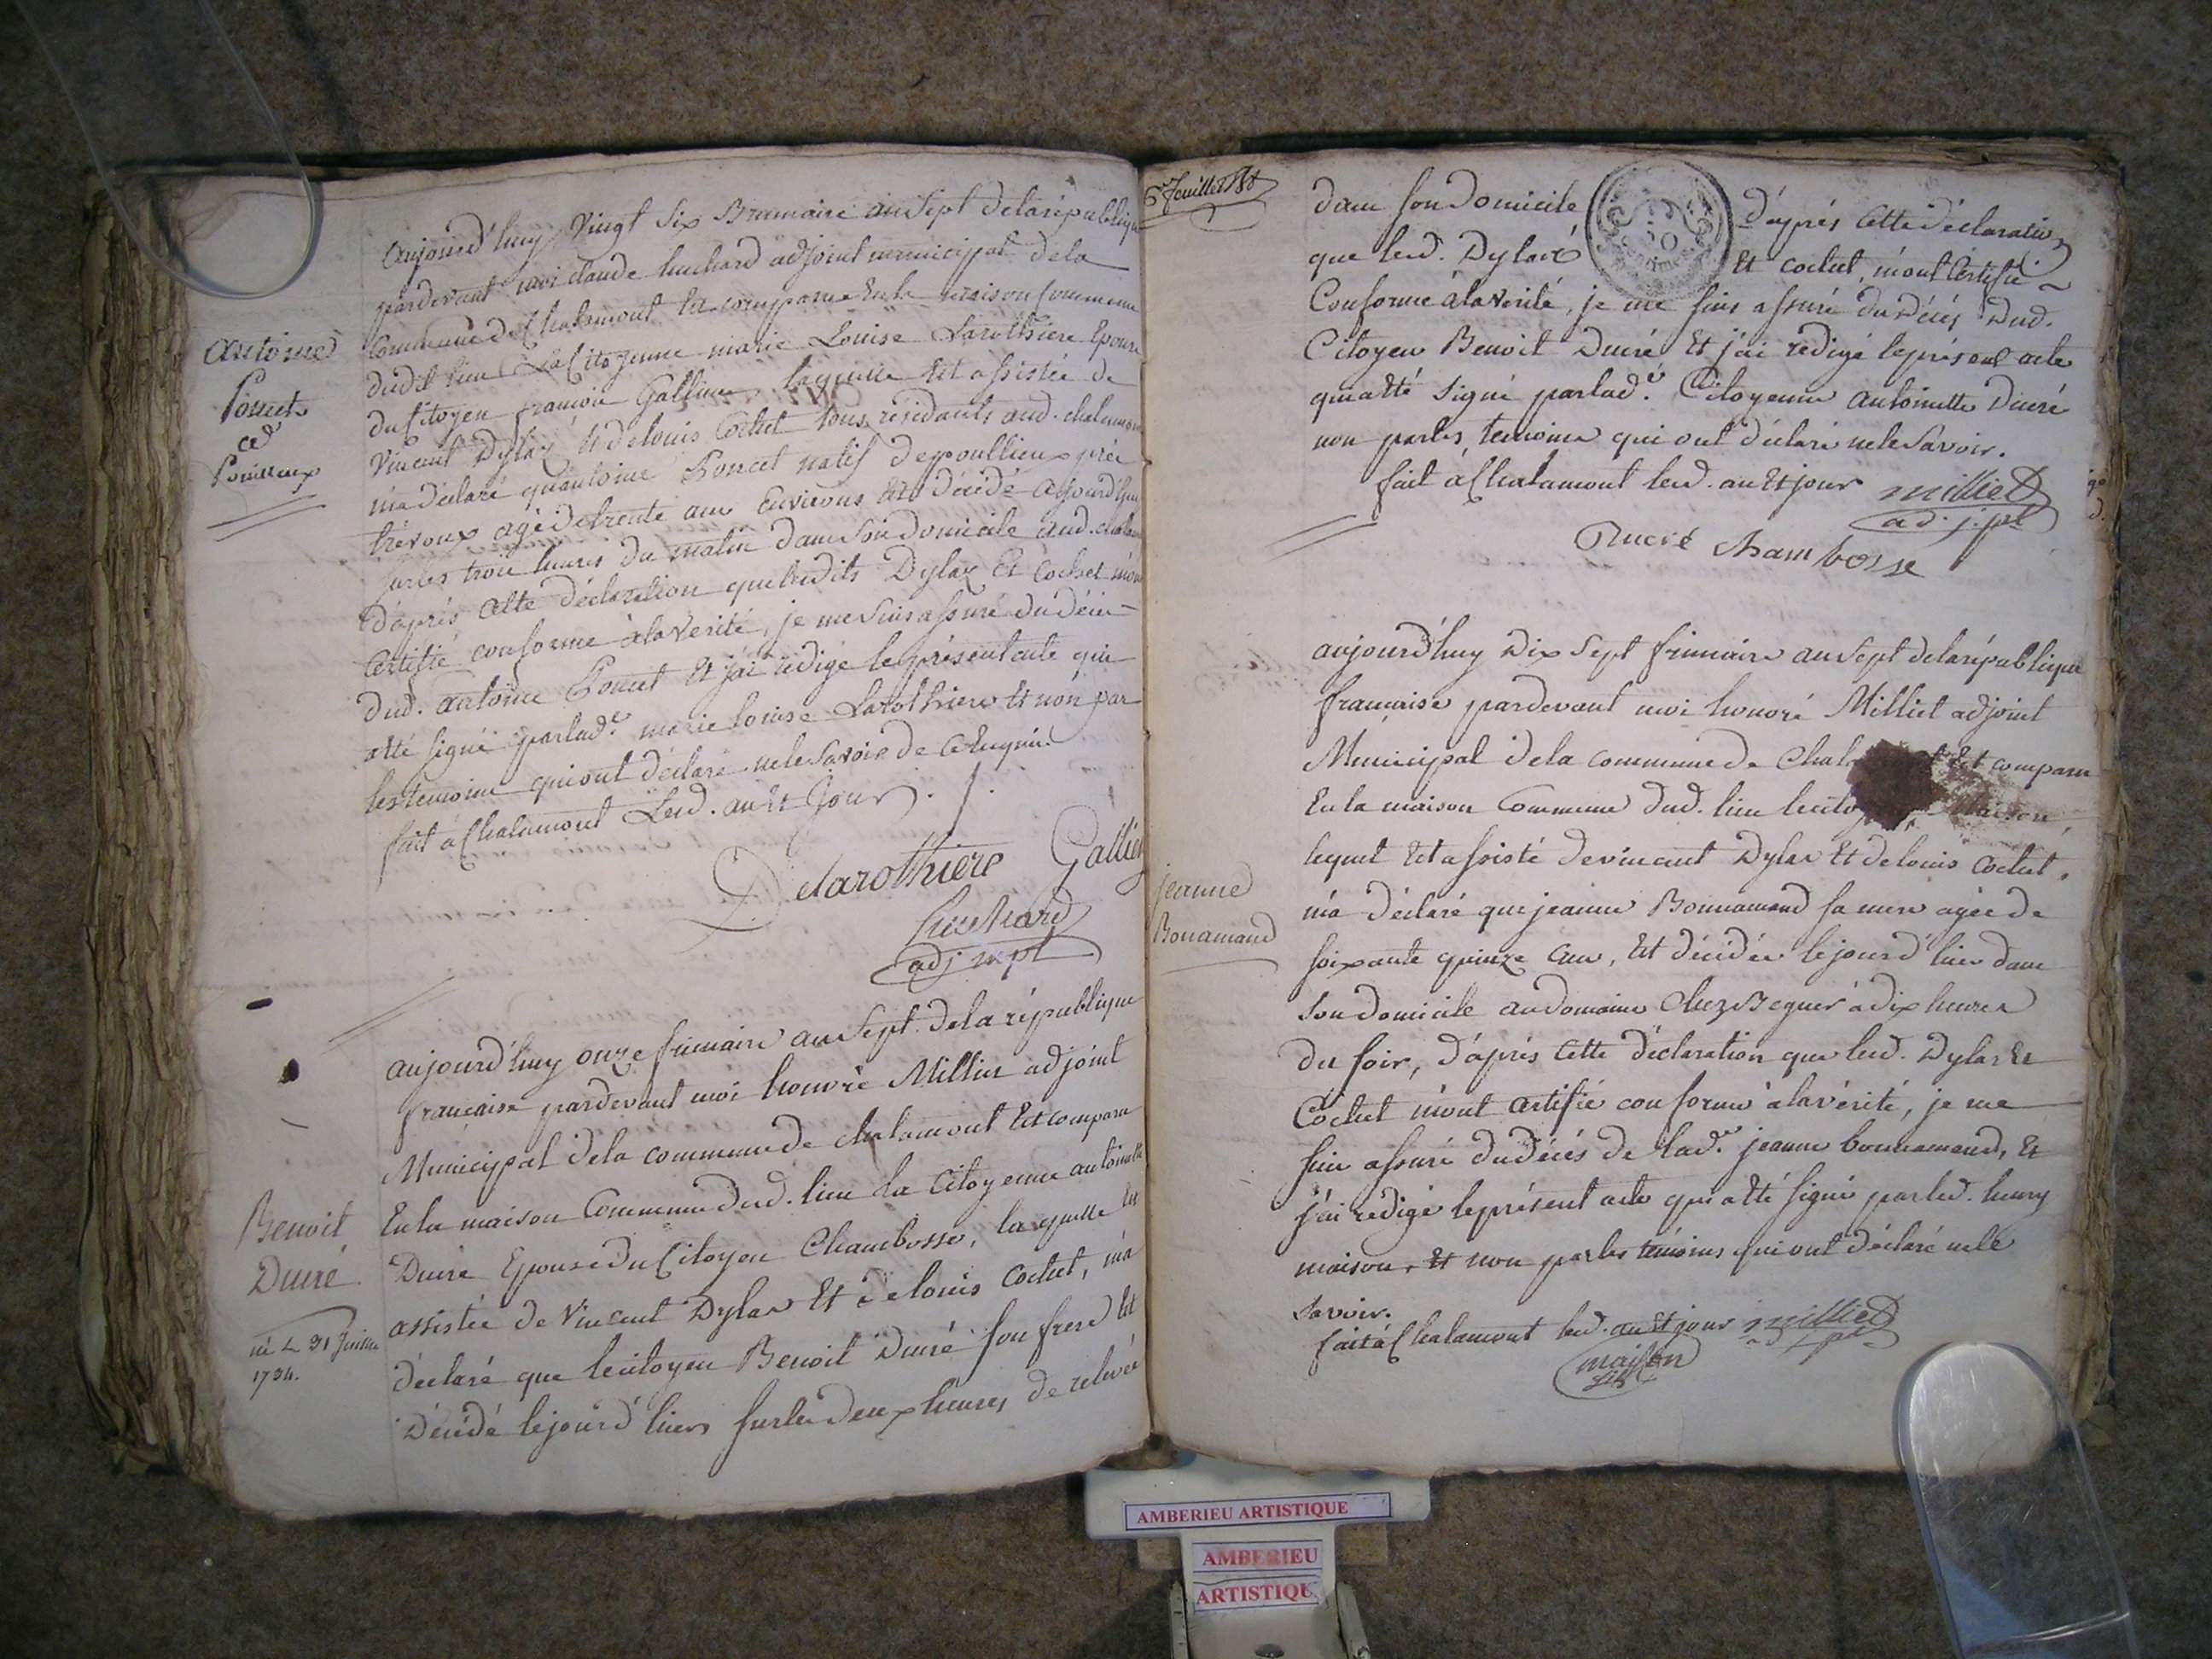 aujourd'huy vingt Six Brumaire an sept de la république
pardevant moi claude huchard adjoint municipal de la
Commune de Chalamont Est comparue En la maison Commune
dudit lieu La Citoyenne marie Louise Larothiere Epouse
du Citoyen francois Gallien laquelle Est assistée de
Vincent Dylas Et de louis Cochet tous residants aud. chalamont
m'a déclaré qu'antoine Poncet natif de poullieux près
trévoux agé de trente ans Environs Est décédé aujourd'huy
sur les trois heures du matin dans son domicile aud. chalam
D'après cette déclaration que lesdits Dylas Et Cochet m'on
Certifié conforme à la Verité, je me suis assuré du décès
dud. antoine Poncet Et j'ai redigé le présent acte qui
a été signé par lad.e marie louise Larothiere Et non par
les temoins qui ont déclaré ne le savoir de ce Enquis
fait à Chalamont Led. an Et Jour
antoine
Poncet
de
Pouilleux
Delarothiere Gallien
huchard
adj mpl
aujourd'huy onze frimaire an Sept de la république
francaise pardevant moi honoré Milliet adjoint
Municipal de la commune de chalamont Est comparu
En la maison Commune dud. lieu la Citoyenne antoinette
Ducré Epouse du Citoyen Chambosse, laquelle Est
assistée de Vincent Dylas Et de louis Cochet, m'a
déclaré que le citoyen Benoit Ducré son frere Est
Décédé le jour d'hiers sur les deux heures de relevée
Benoit
Ducré
né le 31 Juillet
1734.
6e feuillet
dans son Domicile D'après Cette déclaration
que lesd. Dylas Et Cochet, m'ont Certifié
Conforme à la Verité, je me suis assuré du Décès Dud.
Citoyen Benoit Ducré Et j'ai redigé le présent acte
qui a été Signé par lad.e Citoyenne antoinette Ducré
non par les temoins qui ont déclaré ne le Savoir.
fait à Chalamont led. an Et jour milliet
ad. j. pl
Ducré chambosse
50
Centimes
aujourd'huy Dix Sept frimaire an sept de la république
française pardevant moi honoré Milliet adjoint
Municipal de la commune de Chal t Est comparu
En la maison Commune dud. lieu le cito maison,
lequel Est assisté de vincent Dylas Et de louis Cochet,
m'a déclaré que jeanne Bonnamand sa mere agée de
soixante quinze ans, Est décédée le jour d'hier dans
son domicile au domaine Chez Beguer à dix heures
du soir, D'après Cette déclaration que lesd. Dylas Et
Cochet m'ont certifié conforme à la vérité, je me
suis assuré du décès de lad.e jeanne bonnamand, Et
j'ai redigé le présent acte qui a été signé par led. henry
maison, Et non par les témoins qui ont déclaré ne le
savoir.
fait à Chalamont led. an Et jour milliet
maison
fils
jeanne
Bonamand
AMBERIEU ARTISTIQUE
AMBERIEU
ARTISTIQU